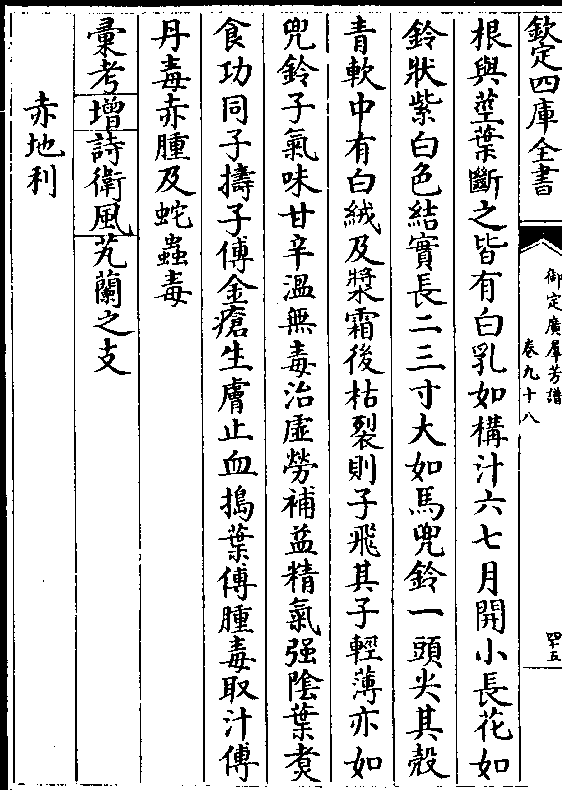 欽定四庫全書
御定廣羣芳譜
卷九十八
四十五
根與莖葉斷之皆有白乳如構汁六七月開小長花如
鈴狀紫白色結實長二三寸大如馬兜鈴一頭尖其殼
青軟中有白絨及漿霜後枯裂則子飛其子輕薄亦如
兜鈴子氣味甘辛溫無毒治虛勞補益精氣强陰葉煑
食功同子擣子傅金瘡生膚止血搗葉傅腫毒取汁傅
丹毒赤腫及蛇蟲毒
彙考增詩衛風芄蘭之支
赤地利